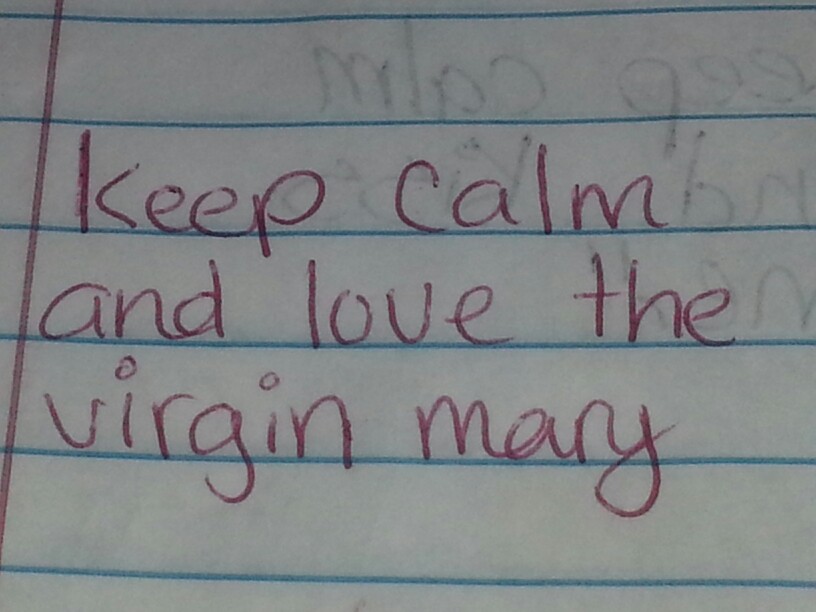 Keep calm
and love the
virgin mary